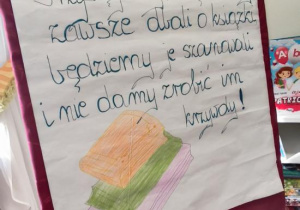 zawsze dbali o książki
będziemy je szanowali
i nie damy zrobić im
krzywdy!